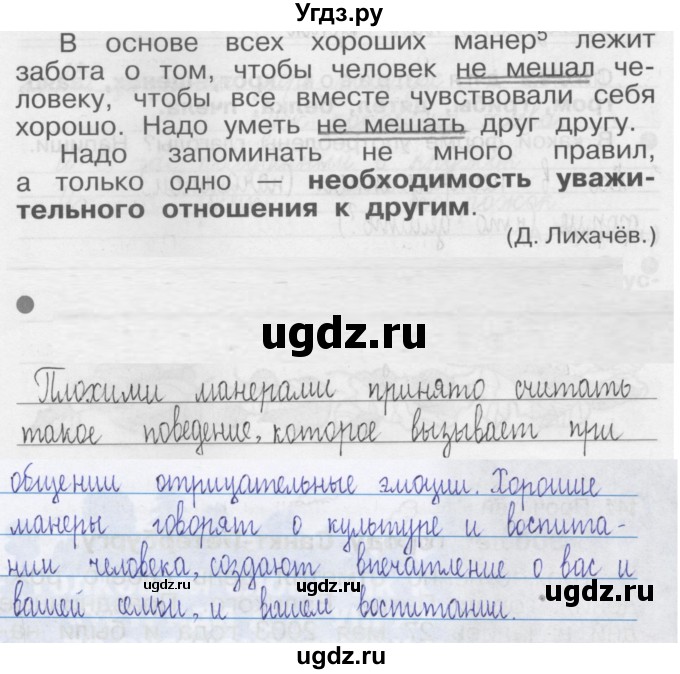 Угдз.ру
В основе всех хороших манер⁵ лежит
забота о том, чтобы человек не мешал че-
ловеку, чтобы все вместе чувствовали себя
хорошо. Надо уметь не мешать друг другу.
Надо запоминать не много правил,
а только одно — необходимость уважи-
тельного отношения к другим.
(Д. Лихачёв.)
ugdz.ru
ugdz.ru
Плохими манерами принято считать
такое поведение, которое вызывает при
общении отрицательные эмоции. Хорошие
манеры говорят о культуре и воспита-
нии человека, создают впечатление о вас и
вашей семьи, и вашем воспитании.
ugdz.ru
ugdz.ru
ugdz.ru